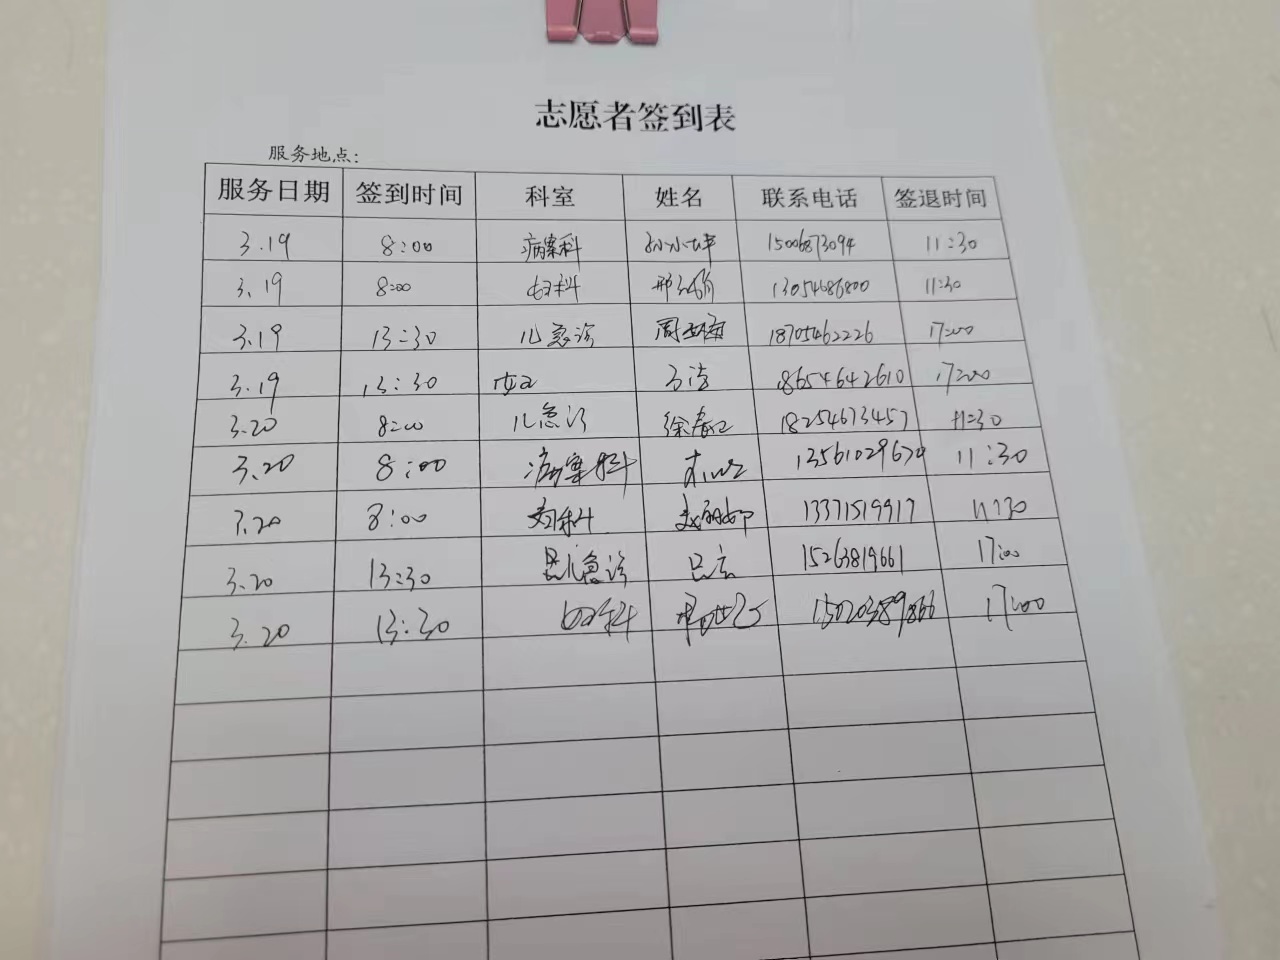 志愿者签到表
服务地点:
服务日期 签到时间 科室 姓名 联系电话 签退时间
3.19 8:00 病案科 孙小坪 15006873094 11:30
3.19 8:00 妇科 邢 13054686800 11:30
3.19 13:30 儿急诊 周 18705462226 17:00
3.19 13:30 18654642610 17:00
3.20 8:00 儿急诊 徐春 18254673457 11:30
3.20 8:00 病案科 11:30
3.20 8:00 妇科 13371519917 11:30
3.20 13:30 儿急诊 吕 15263819661 17:00
3.20 13:30 妇科 15020389866 17:00